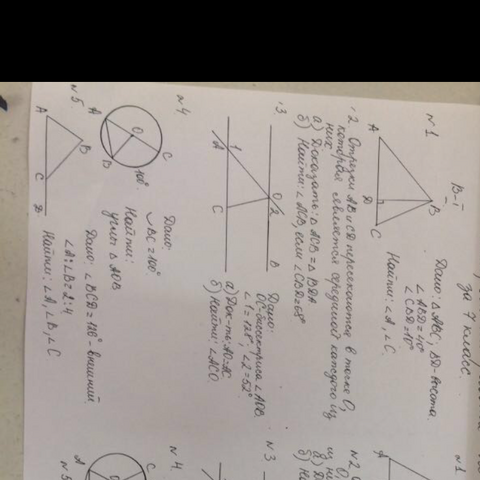 за 7 класс.
В-I
N 1.
B
A
D
C
Дано: △ABC, BD-высота.
∠ABD=40°
∠CBD=10°
Найти: ∠A, ∠C.
2. Отрезки AB и CD пересекаются в точке O,
которая является серединой каждого из
них
а) Доказать: △ACB = △BDA
б) Найти: ∠ACB, если ∠CBD=68°
3
A
1
O
2
B
C
Дано:
OC-биссектриса ∠AOB,
∠1=128°, ∠2=52°
а) Док-ть: AO=AC
б) Найти: ∠ACO.
N 4
A
O
B
C
100°
Дано:
◡BC=100°
Найти:
углы △AOB
N 5.
A
B
C
D
Дано: ∠BCD=120°-внешний
∠A:∠B=2:4
Найти: ∠A, ∠B, ∠C
N 1
A
N 2.
а)
б)
N 3
N 4.
C
A
N 5